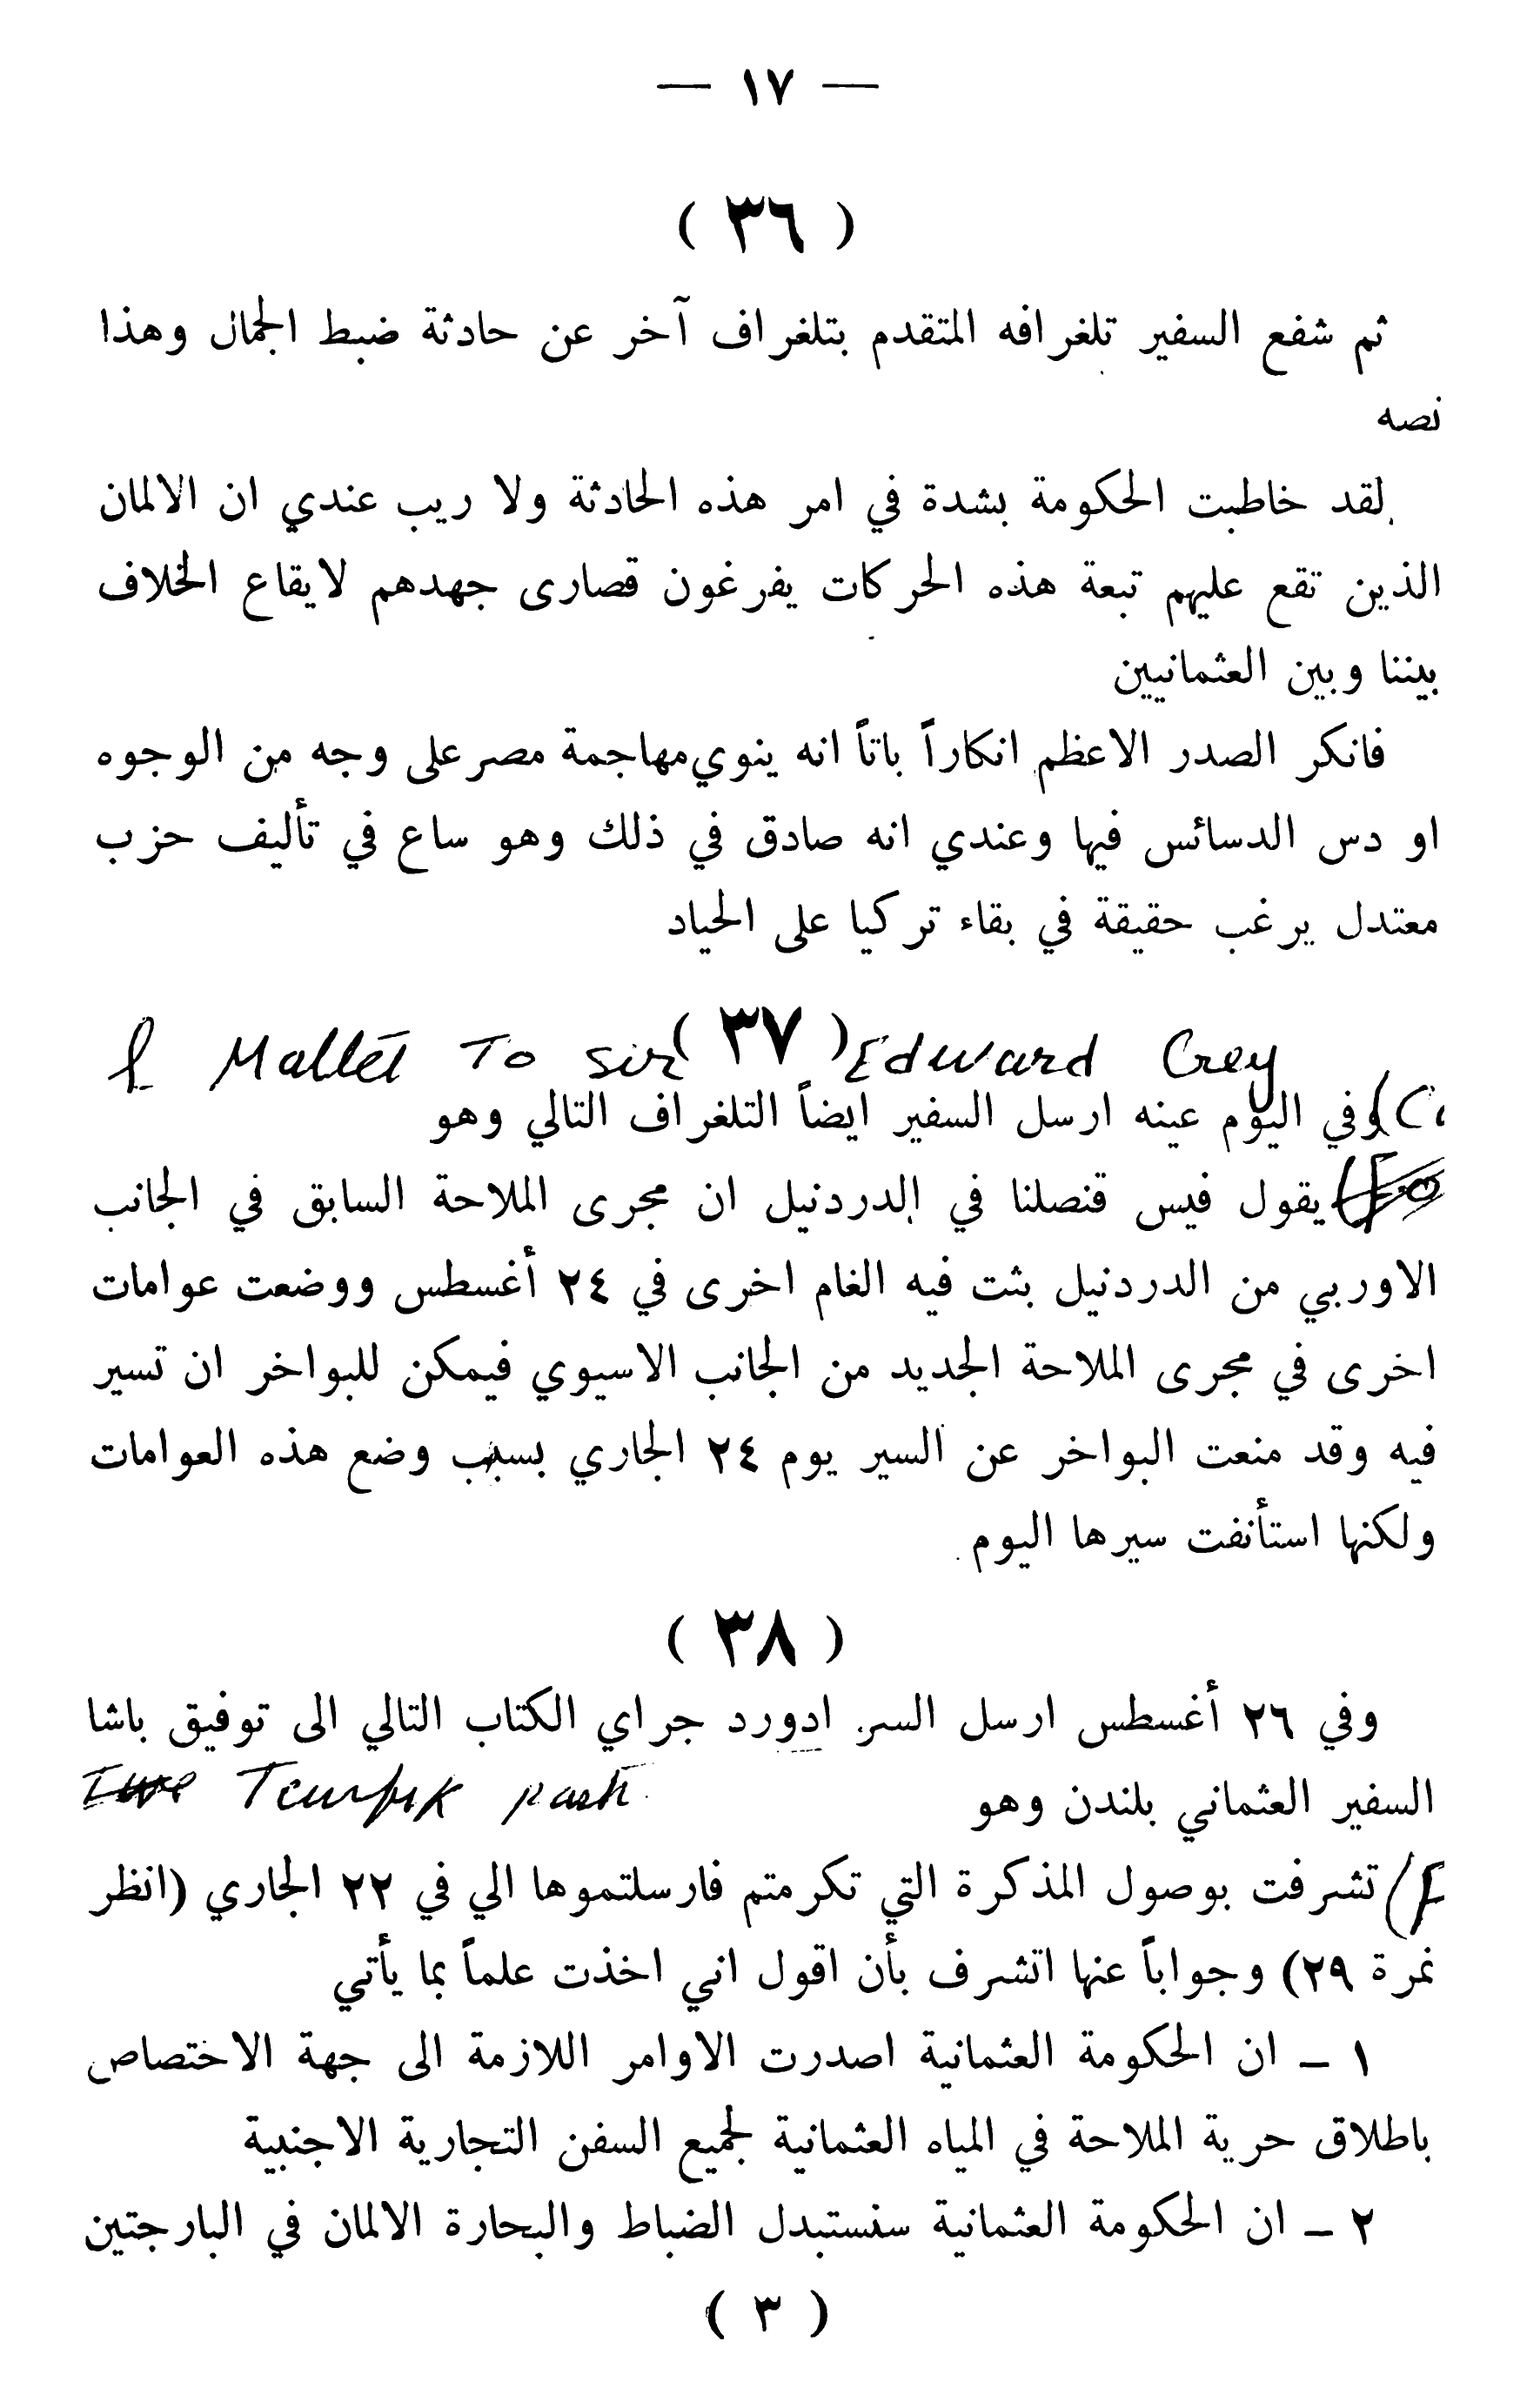 — ١٧ —
( ٣٦ )
ثم شفع السفير تلغرافه المتقدم بتلغراف آخر عن حادثة ضبط الجمال وهذا
نصه
لقد خاطبت الحكومة بشدة في امر هذه الحادثة ولا ريب عندي ان الالمان
الذين تقع عليهم تبعة هذه الحركات يفرغون قصارى جهدهم لايقاع الخلاف
بيننا وبين العثمانيين
فانكر الصدر الاعظم انكاراً باتاً انه ينوي مهاجمة مصر على وجه من الوجوه
او دس الدسائس فيها وعندي انه صادق في ذلك وهو ساع في تأليف حزب
معتدل يرغب حقيقة في بقاء تركيا على الحياد
( ٣٧ )
Mallet To sir Edward Grey
وفي اليوم عينه ارسل السفير ايضاً التلغراف التالي وهو
يقول فيس قنصلنا في الدردنيل ان مجرى الملاحة السابق في الجانب
الاوربي من الدردنيل بثت فيه الغام اخرى في ٢٤ أغسطس ووضعت عوامات
اخرى في مجرى الملاحة الجديد من الجانب الاسيوي فيمكن للبواخر ان تسير
فيه وقد منعت البواخر عن السير يوم ٢٤ الجاري بسبب وضع هذه العوامات
ولكنها استأنفت سيرها اليوم
( ٣٨ )
وفي ٢٦ أغسطس ارسل السر ادورد جراي الكتاب التالي الى توفيق باشا
السفير العثماني بلندن وهو
Tewfik pash
تشرفت بوصول المذكرة التي تكرمتم فارسلتموها الي في ٢٢ الجاري (انظر
نمرة ٢٩) وجواباً عنها اتشرف بأن اقول اني اخذت علماً بما يأتي
١ – ان الحكومة العثمانية اصدرت الاوامر اللازمة الى جهة الاختصاص
باطلاق حرية الملاحة في المياه العثمانية لجميع السفن التجارية الاجنبية
٢ – ان الحكومة العثمانية ستستبدل الضباط والبحارة الالمان في البارجتين
( ٣ )